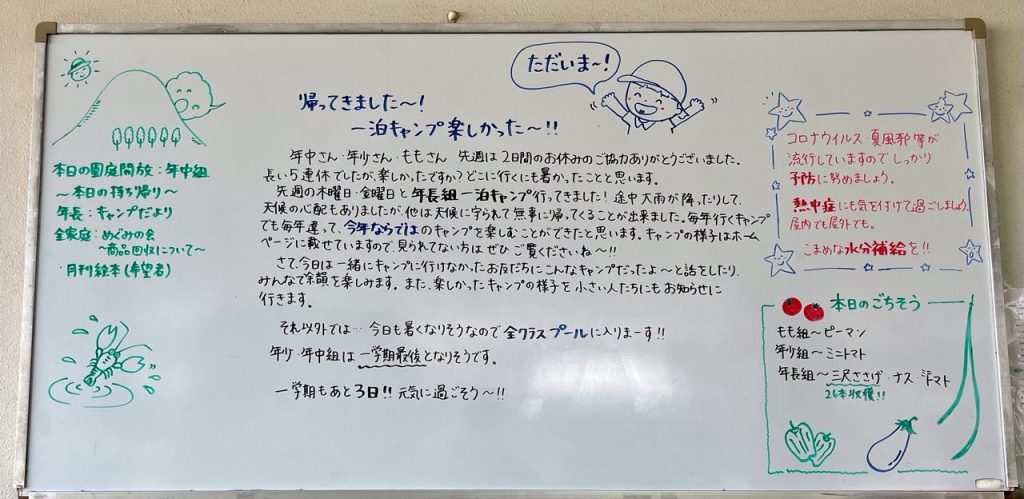 ただいま〜!
帰ってきました〜!
一泊キャンプ楽しかった〜!!
年中さん・年少さん・ももさん 先週は2日間のお休みのご協力ありがとうございました。
長い5連休でしたが、楽しかったですか?どこに行くにも暑かったことと思います。
先週の木曜日・金曜日と年長組一泊キャンプ行ってきました!途中大雨が降ったりして、
天候の心配もありましたが、他は天候に守られて無事に帰ってくることが出来ました。毎年行くキャンプ
でも毎年違って、今年ならではのキャンプを楽しむことができたと思います。キャンプの様子はホーム
ページに載せていますので、見られてない方は ぜひ ご覧くださいね〜!!
さて、今日は一緒にキャンプに行けなかったお友だちにこんなキャンプだったよ〜と話をしたり、
みんなで余韻を楽しみます。また、楽しかったキャンプの様子を小さい人たちにもお知らせに
行きます。
それ以外では…今日も暑くなりそうなので全クラスプールに入りまーす!!
年少・年中組は一学期最後となりそうです。
一学期もあと3日!!元気に過ごそう〜!!
本日の園庭開放:年中組
〜本日の持ち帰り〜
年長:キャンプだより
全家庭:めぐみの会
〜商品回収について〜
月刊絵本(希望者)
コロナウイルス・夏風邪等が
流行していますのでしっかり
予防に努めましょう。
熱中症にも気を付けて過ごしましょう。
屋内でも屋外でも。
こまめな水分補給を!!
本日のごちそう
もも組〜ピーマン
年少組〜ミニトマト
年長組〜三沢ささげ・ナス・ミニトマト
26本収穫!!